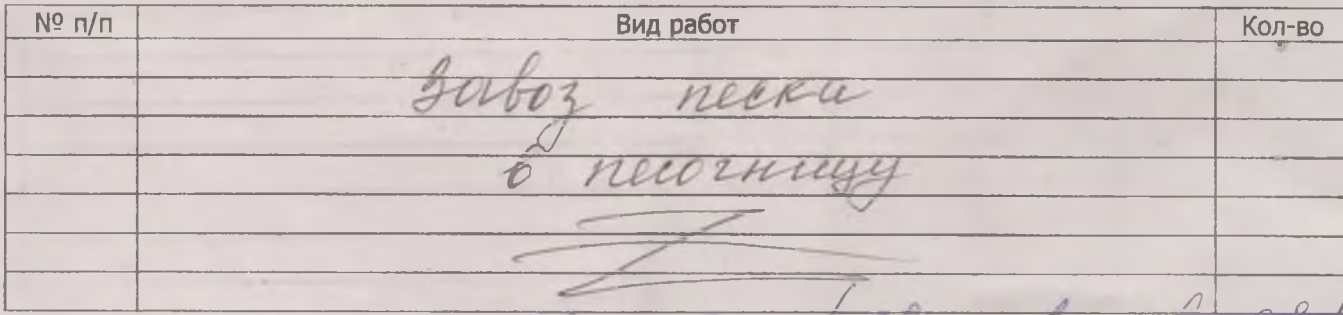 № п/п Вид работ Кол-во
Завоз песка
в песочницу